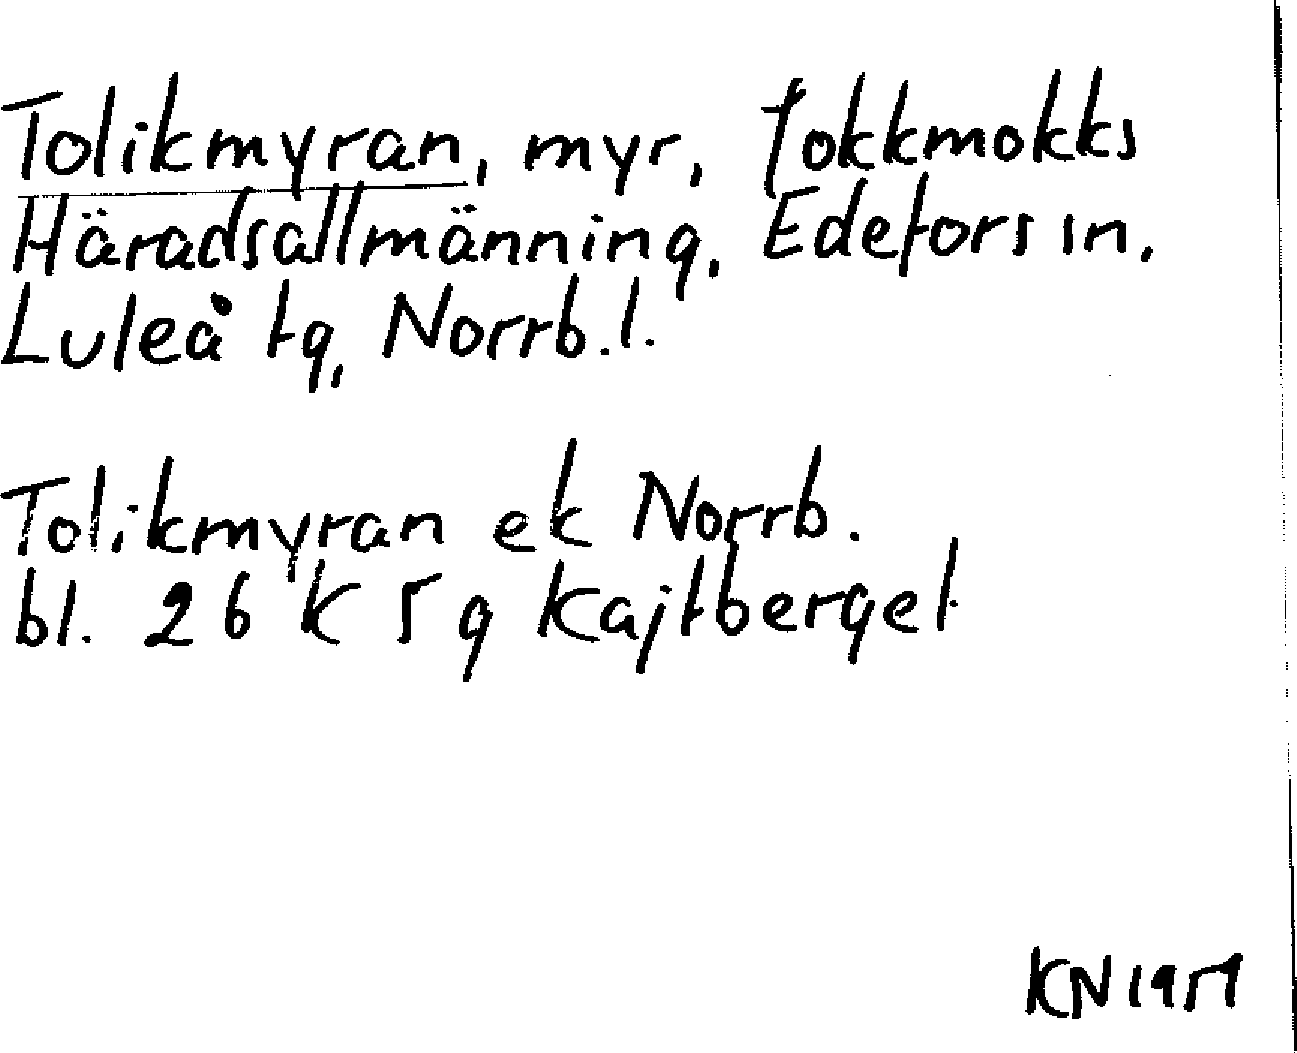 Tolikmyran, myr, Jokkmokks
Häradsallmänning, Edefors sn.
Luleå tg, Norrb.l.
Tolikmyran ek Norrb.
bl. 26 K 5 g Kajtberget
KN